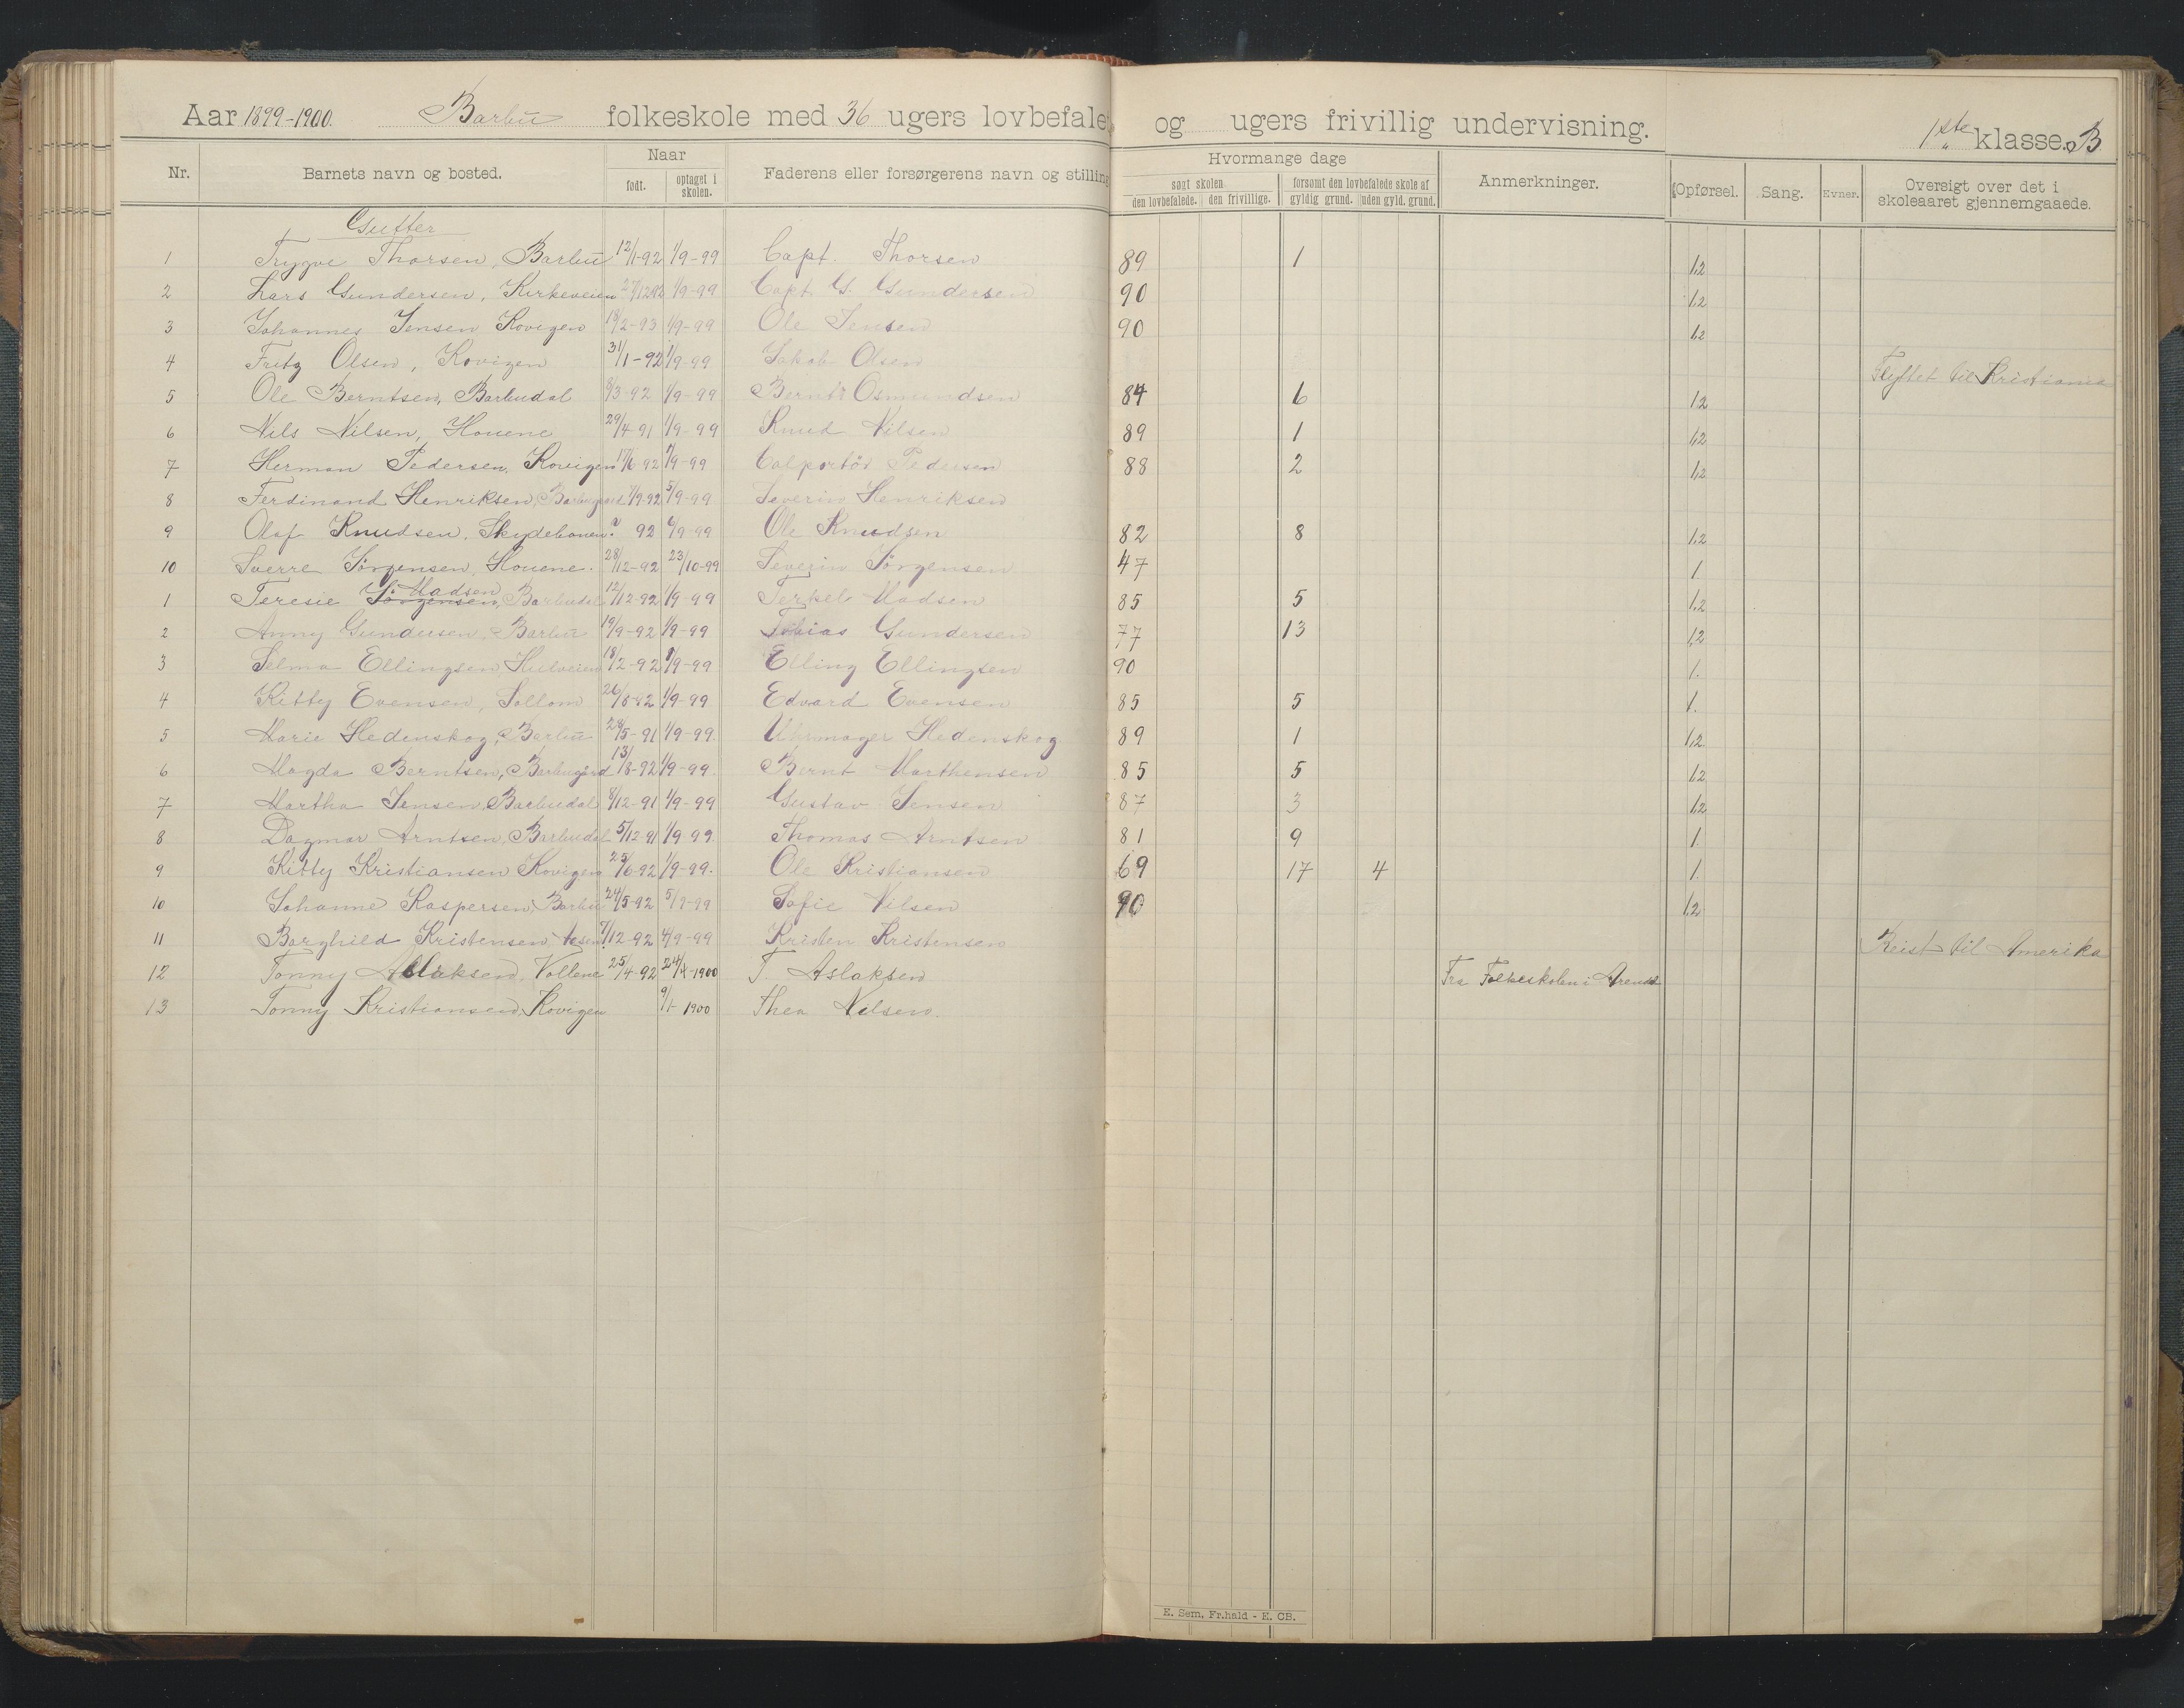 Aar 1899-1900. Barbu folkeskole med 36 ugers lovbefale og ugers frivillig undervisning. 1ste klasse. B
Nr. Barnets navn og bosted. Naar født. optaget i skolen. Faderens eller forsørgerens navn og stilling Hvormange dage søgt skolen den lovbefalede. den frivillige. forsømt den lovbefalede skole af gyldig grund. uden gyld. grund. Anmerkninger. Opførsel. Sang. Evner. Oversigt over det i skoleaaret gjennemgaaede.
Gutter
1 Trygve Thorsen, Barbu 12/1-92 1/9-99 Capt. Thorsen 89 1 1,2
2 Lars Gundersen, Kirkeveien 27/12 92 1/9-99 Capt. G. Gundersen 90 1,2
3 Johannes Jensen Kovigen 18/2-93 1/9-99 Ole Jensen 90 1,2
4 Fritz Olsen, Kovigen 31/1-92 1/9-99 Jakob Olsen Flyttet til Kristiania
5 Ole Berntsen, Barbudal 8/3-92 1/9-99 Bernt Osmundsen 84 6 1,2
6 Nils Nilsen, Houene 29/4-91 1/9-99 Knud Nilsen 89 1 1,2
7 Herman Pedersen, Kovigen 17/6-92 1/9-99 Colportør Pedersen 88 2 1,2
8 Ferdinand Henriksen, Barbugaard 1/9-92 5/9-99 Severin Henriksen
9 Olaf Knudsen, Skydebanen ? 92 6/9-99 Ole Knudsen 82 8 1,2
10 Sverre Jørgensen, Houene. 28/12-92 23/10-99 Severin Jørgensen 47 1
1 Teresie Jørgensen Madsen, Barbudal 12/12-92 1/9-99 Terkel Madsen 85 5 1,2
2 Anny Gundersen, Barbu 19/9-92 1/9-99 Tobias Gundersen 77 13 1,2
3 Selma Ellingsen, Hulveien 18/2-92 1/9-99 Elling Ellingsen 90 1.
4 Kitty Evensen, Sollom 26/8-92 1/9-99 Edvard Evensen 85 5 1.
5 Marie Hedenskog, Barbu 28/5-91 1/9-99. Uhrmager Hedenskog 89 1 1,2.
6 Magda Berntsen, Barbugård 13/8-92 1/9-99. Bernt Marthensen 85 5 1,2
7 Martha Jensen, Barbudal 8/12-91 1/9-99 Gustav Jensen 87 3 1,2
8 Dagmar Arntsen, Barbudal 5/12-91 1/9-99 Thomas Arntsen 81 9 1.
9 Kitty Kristiansen Kovigen 25/6-92 1/9-99. Ole Kristiansen 69 17 4 1.
10 Johanne Kaspersen, Barbu 24/5-92 5/9-99 Sofie Nilsen 90 1,2
11 Borghild Kristensen 7/12-92 4/9-99 Kristen Kristensen Reist til Amerika
12 Tonny Aslaksen, Vollene 25/4-92 24/4-1900 T. Aslaksen Fra Folkeskolen i Arendal
13 Tonny Kristiansen, Kovigen 9/1-1900 Thea Nilsen.
E. Sem, Fr.hald - E. CB.